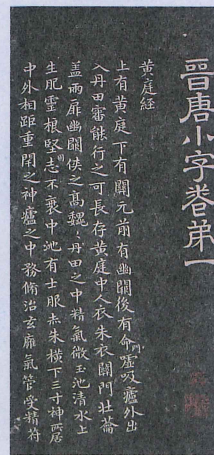 晉唐小字卷第一
黃庭經
上有黃庭下有關元前有幽闕後有命門噓吸廬外出
入丹田審能行之可長存黃庭中人衣朱衣關門壯蘥
蓋兩扉幽闕俠之高魏魏丹田之中精氣微玉池清水上
生肥靈根堅志不衰中池有士服赤朱橫下三寸神所居
中外相距重閉之神廬之中務脩治玄廱氣管受精符